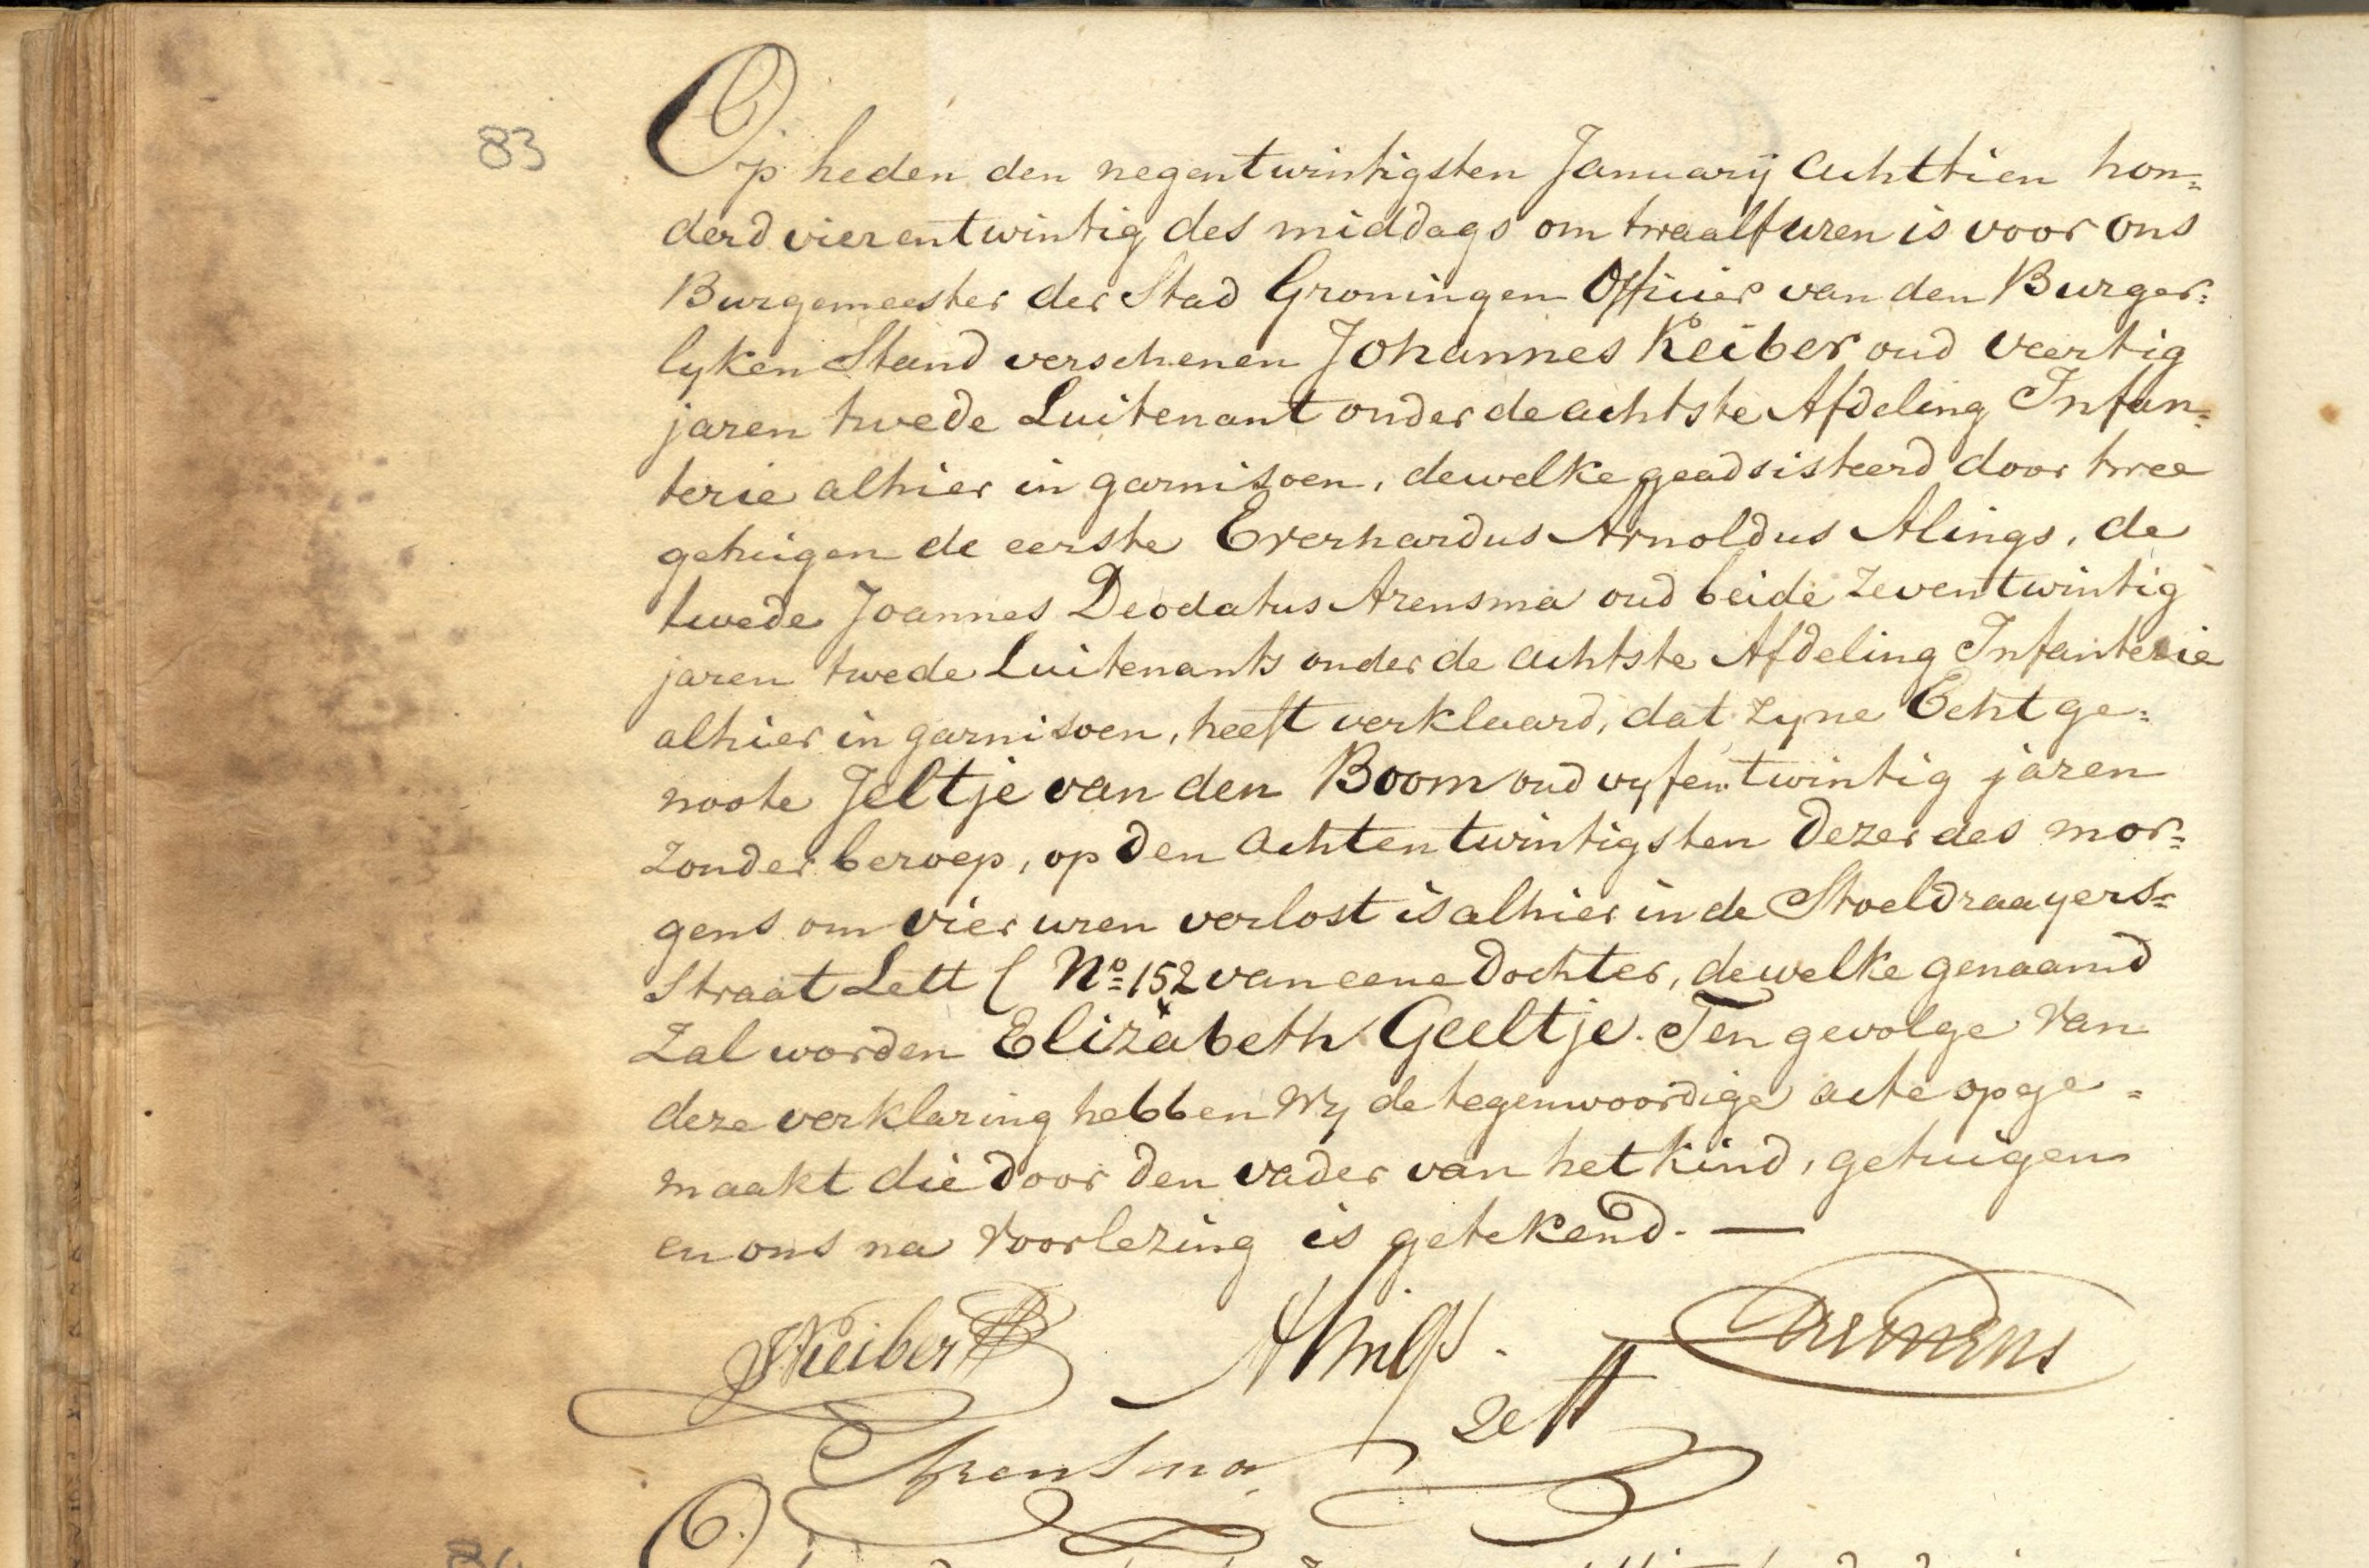 83
Op heden den negentwintigsten Januarij achttien hon=
derd vierentwintig des middags om twaalf uren is voor ons
Burgemeester der Stad Groningen Officier van den Burger=
lyken Stand verschenen Johannes Keiber oud veertig
jaren twede Luitenant onder de achtste Afdeling Infan=
terie alhier in garnisoen, dewelke geadsisteerd door twee
getuigen de eerste Everhardus Arnoldus Alings, de
twede Joannes Deodatus Arensma oud beide zeventwintig
jaren twede Luitenants onder de achtste Afdeling Infanterie
alhier in garnisoen, heeft verklaard, dat zyne Echtge=
noote Jeltje van den Boom oud vyfentwintig jaren
zonder beroep, op den achtentwintigsten dezer des mor=
gens om vier uren verlost is alhier in de Stoeldraayers=
Straat Lett C No 152 van eene Dochter, dewelke genaamd
zal worden Elizabeth Geeltje. Ten gevolge van
deze verklaring hebben wy de tegenwoordige acte opge=
maakt die door den vader van het kind, getuigen
en ons na voorlezing is getekend. —
JKeiber Alings.
Arensma